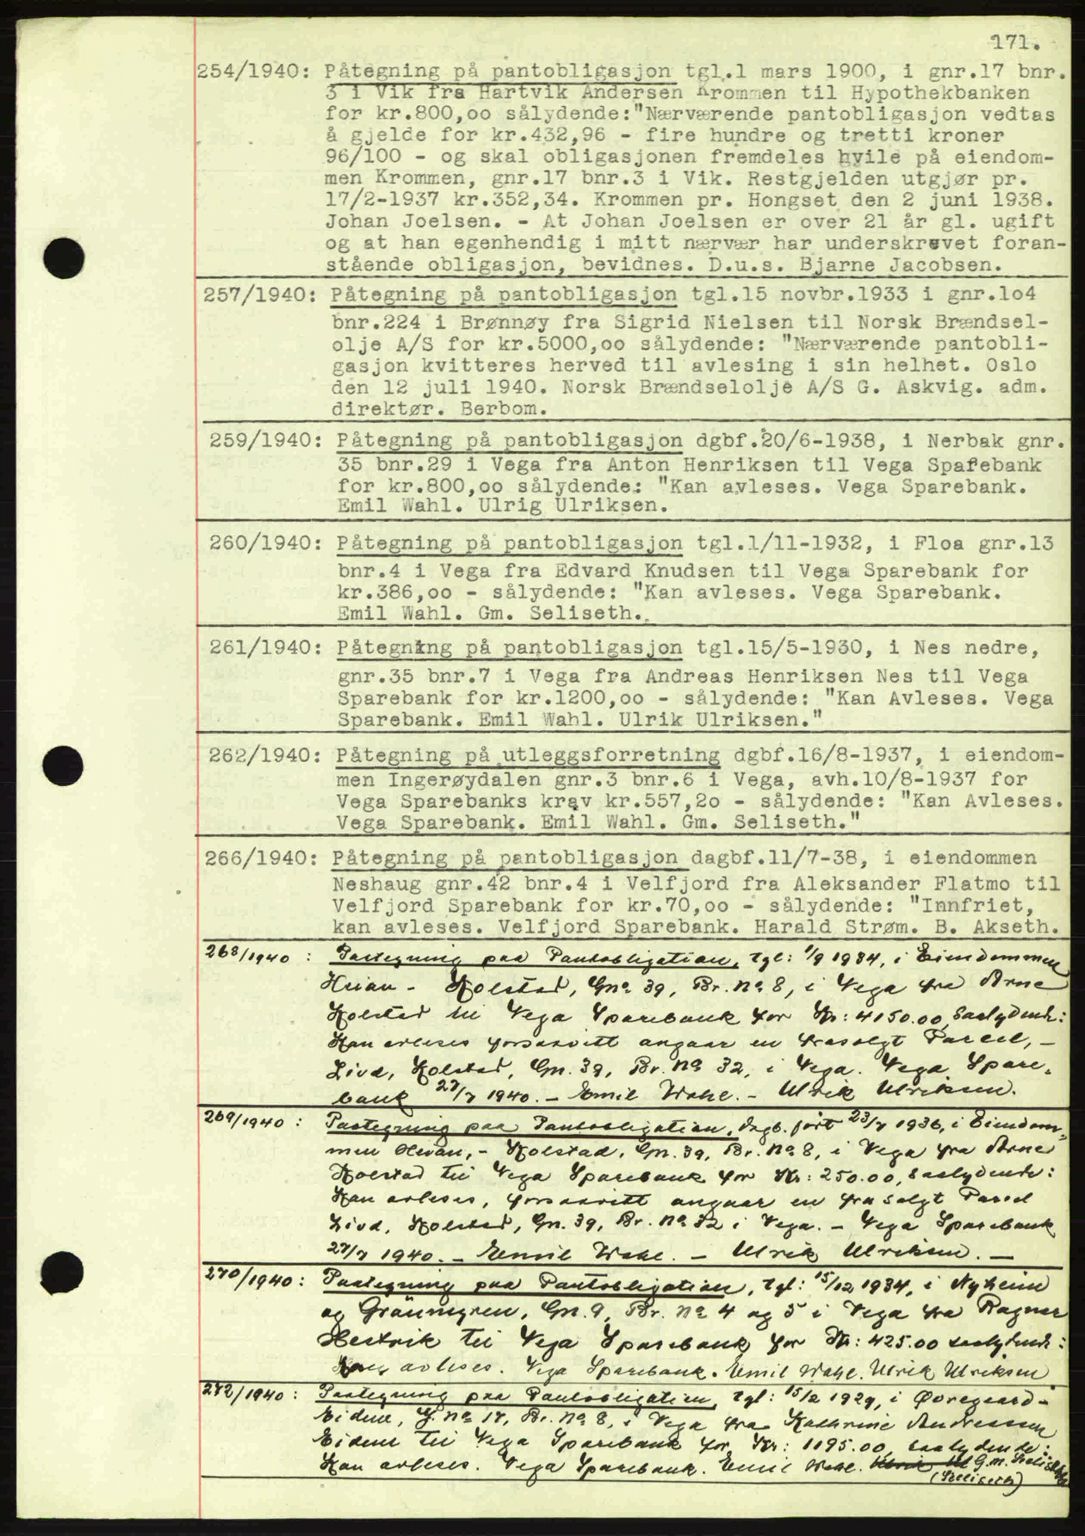 171.
254/1940: Påtegning på pantobligasjon tgl.1 mars 1900, i gnr.17 bnr.
3 i Vik fra Hartvik Andersen Krommen til Hypothekbanken
for kr.800,oo sålydende:"Nærværende pantobligasjon vedtas
å gjelde for kr.432,96 - fire hundre og tretti kroner
96/100 - og skal obligasjonen fremdeles hvile på eiendom-
men Krommen, gnr.17 bnr.3 i Vik. Restgjelden utgjør pr.
17/2-1937 kr.352,34. Krommen pr. Hongset den 2 juni 1938.
Johan Joelsen. - At Johan Joelsen er over 21 år gl. ugift
og at han egenhendig i mitt nærvær har underskrevet foran-
stående obligasjon, bevidnes. D.u.s. Bjarne Jacobsen.
257/1940: Påtegning på pantobligasjon tgl.15 novbr.1933 i gnr.1o4
bnr.224 i Brønnøy fra Sigrid Nielsen til Norsk Brændsel-
olje A/S for kr.5000,oo sålydende: "Nærværende pantobli-
gasjon kvitteres herved til avlesing i sin helhet. Oslo
den 12 juli 1940. Norsk Brændselolje A/S G. Askvig. adm.
direktør. Berbom.
259/1940: Påtegning på pantobligasjon dgbf.20/6-1938, i Nerbak gnr.
35 bnr.29 i Vega fra Anton Henriksen til Vega Sparebank
for kr.800,oo sålydende: "Kan avleses. Vega Sparebank.
Emil Wahl. Ulrig Ulriksen.
260/1940: Påtegning på pantobligasjon tgl.1/11-1932, i Floa gnr.13
bnr.4 i Vega fra Edvard Knudsen til Vega Sparebank for
kr.386,oo - sålydende: "Kan avleses. Vega Sparebank.
Emil Wahl. Gm. Seliseth.
261/1940: Påtegning på pantobligasjon tgl.15/5-1930, i Nes nedre,
gnr.35 bnr.7 i Vega fra Andreas Henriksen Nes til Vega
Sparebank for kr.1200,oo - sålydende: "Kan Avleses. Vega
Sparebank. Emil Wahl. Ulrik Ulriksen."
262/1940: Påtegning på utleggsforretning dgbf.16/8-1937, i eiendom-
men Ingerøydalen gnr.3 bnr.6 i Vega, avh.10/8-1937 for
Vega Sparebanks krav kr.557,2o - sålydende: "Kan Avleses.
Vega Sparebank. Emil Wahl. Gm. Seliseth."
266/1940: Påtegning på pantobligasjon dagbf.11/7-38, i eiendommen
Neshaug gnr.42 bnr.4 i Velfjord fra Aleksander Flatmo til
Velfjord Sparebank for kr.70,oo - sålydende: "Innfriet,
kan avleses. Velfjord Sparebank. Harald Strøm. B. Akseth.
268/1940: Paategning paa Pantobligation, tgl: 1/9 1934, i Eiendommen
- Holstad, Gno 39, Br. No 8, i Vega fra Arne
Holstad til Vega Sparebank for Kr: 4150.00, saalydende:
Kan avleses forsaavitt angaar en frasolgt Parcel, -
Livd, Holstad, Gn. 39, Br. No 32, i Vega. Vega Spare-
bank 27/7 1940. - Emil Wahl. - Ulrik Ulriksen.
269/1940: Paategning paa Pantobligation, dagb.ført 23/7 1936, i Eiendom-
men - Holstad, Gn. 39, Br. No 8, i Vega fra Arne
Holstad til Vega Sparebank for Kr: 250.00, saalydende:
Kan avleses, forsaavitt angaar en frasolgt Parcel
Livd, Holstad, Gn. 39, Br. No 32 i Vega. - Vega Sparebank
27/7 1940. - Emil Wahl. - Ulrik Ulriksen. -
270/1940: Paategning paa Pantobligation, tgl: 15/12 1934, i Nyheim
og Gn. 9, Br. No 4 og 5 i Vega fra Ragnar
til Vega Sparebank for Kr: 425.00 saalydende:
Kan avleses. Vega Sparebank. Emil Wahl. Ulrik Ulriksen
272/1940: Paategning paa Pantobligation, tgl: 15/2 1929, i Øvregaard-
Eidem, G. No 17, Br. No 8, i Vega fra Kathrine Andreassen
Eidem til Vega Sparebank for Kr: 1195.00, saalydende:
Kan avleses. Vega Sparebank. Emil Wahl. Ulrik Ul G.m. Seliseth
(Seliseth)